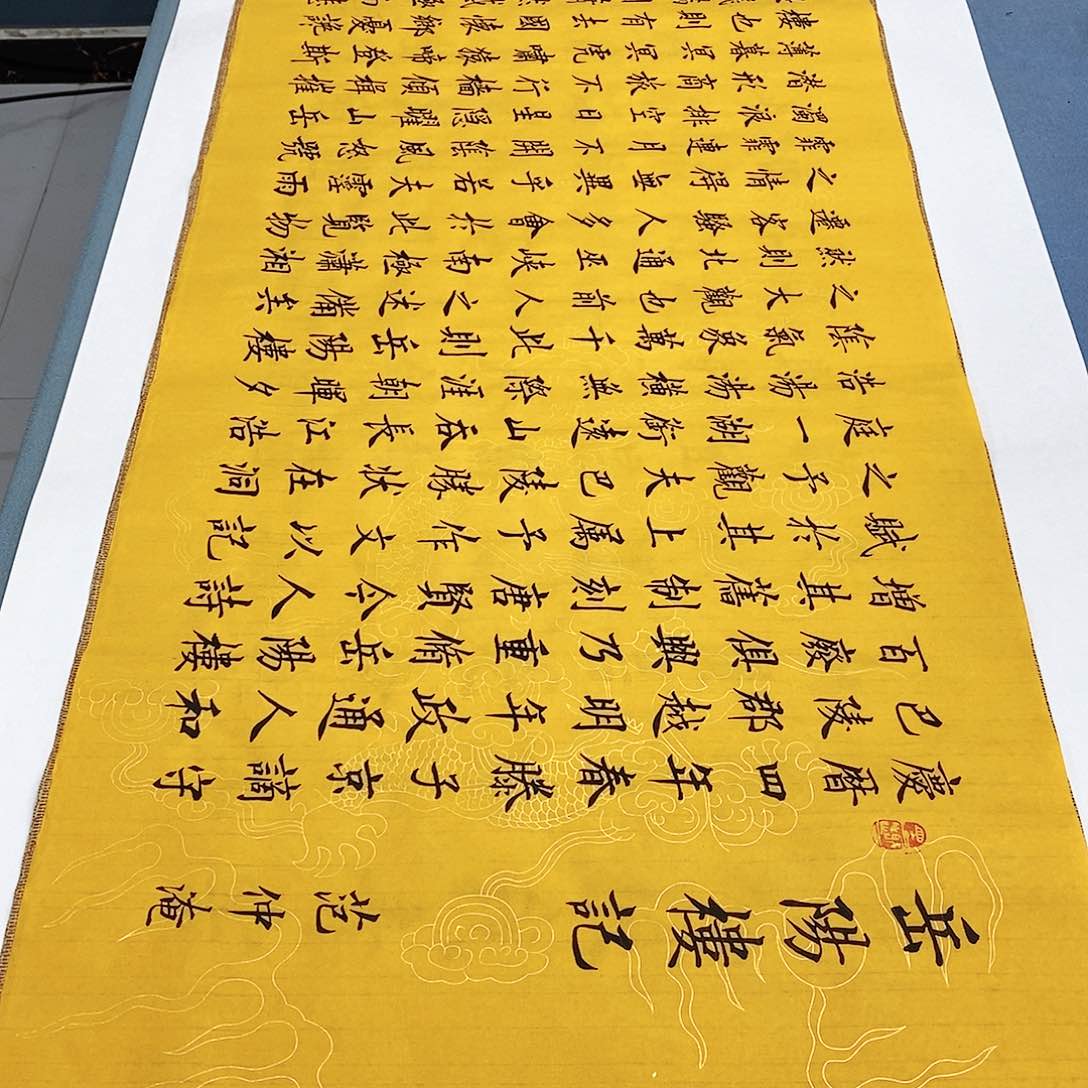 岳陽樓記
范仲淹
慶曆四年春滕子京謫守
巴陵郡越明年政通人和
百廢俱興乃重脩岳陽樓
增其舊制刻唐賢今人詩
賦於其上屬予作文以記
之予觀夫巴陵勝狀在洞
庭一湖銜遠山吞長江浩
浩湯湯橫無際涯朝暉夕
陰氣象萬千此則岳陽樓
之大觀也前人之述備矣
然則北通巫峽南極瀟湘
遷客騷人多會於此覽物
之情得無異乎若夫霪雨
霏霏連月不開陰風怒號
濁浪排空日星隱曜山岳
潛形商旅不行檣傾楫摧
薄暮冥冥虎嘯猿啼登斯
樓也則有去國懷鄉憂讒